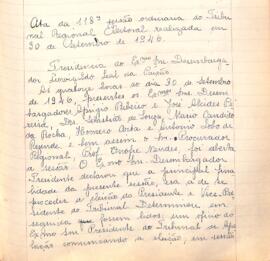 Ata da 118ª sessão ordinaria do Tribu-
nal Regional Eleitoral realizada em
30 de Setembro de 1946.
Presidencia do Exmo Snr. Desembarga-
dor Leal da
As quatorze horas do dia 30 de Setembro
de 1946, presentes os Exmos Snrs. Desem-
bargadores Ribeiro e José Alcides Pe-
reira, Drs. de Souza, Mario Candido
da Rocha, Homero e Antonio Lobo de
Rezende e bem assim o Snr. Procurador
Regional, Prof. Onofre Mendes, foi aberta
a sessão. O Exmo Snr. Desembargador
Presidente declarou que a principal fina-
lidade da presente sessão, era a de se
proceder a eleição do Presidente e Vice-Pre-
sidente do Tribunal. Determinou em
seguida que fossem lidos: um oficio do
Exmo Snr. Presidente do Tribunal de Ape-
lação comunicando a eleição, em sessão